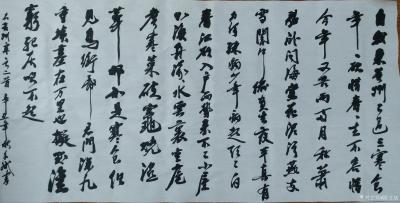 自我來黃州已過三寒食
年年欲惜春春去不容惜
今年又苦雨兩月秋蕭
瑟卧聞海棠花泥污燕支
雪闇中偷負去夜半真有
力何殊病少年病起頭已白
春江欲入户雨勢來不已小屋
如漁舟濛濛水雲裏空庖
煮寒菜破竈燒濕
葦那知是寒食但
見烏銜紙君門深九
重墳墓在万里也擬哭塗
窮死灰吹不起